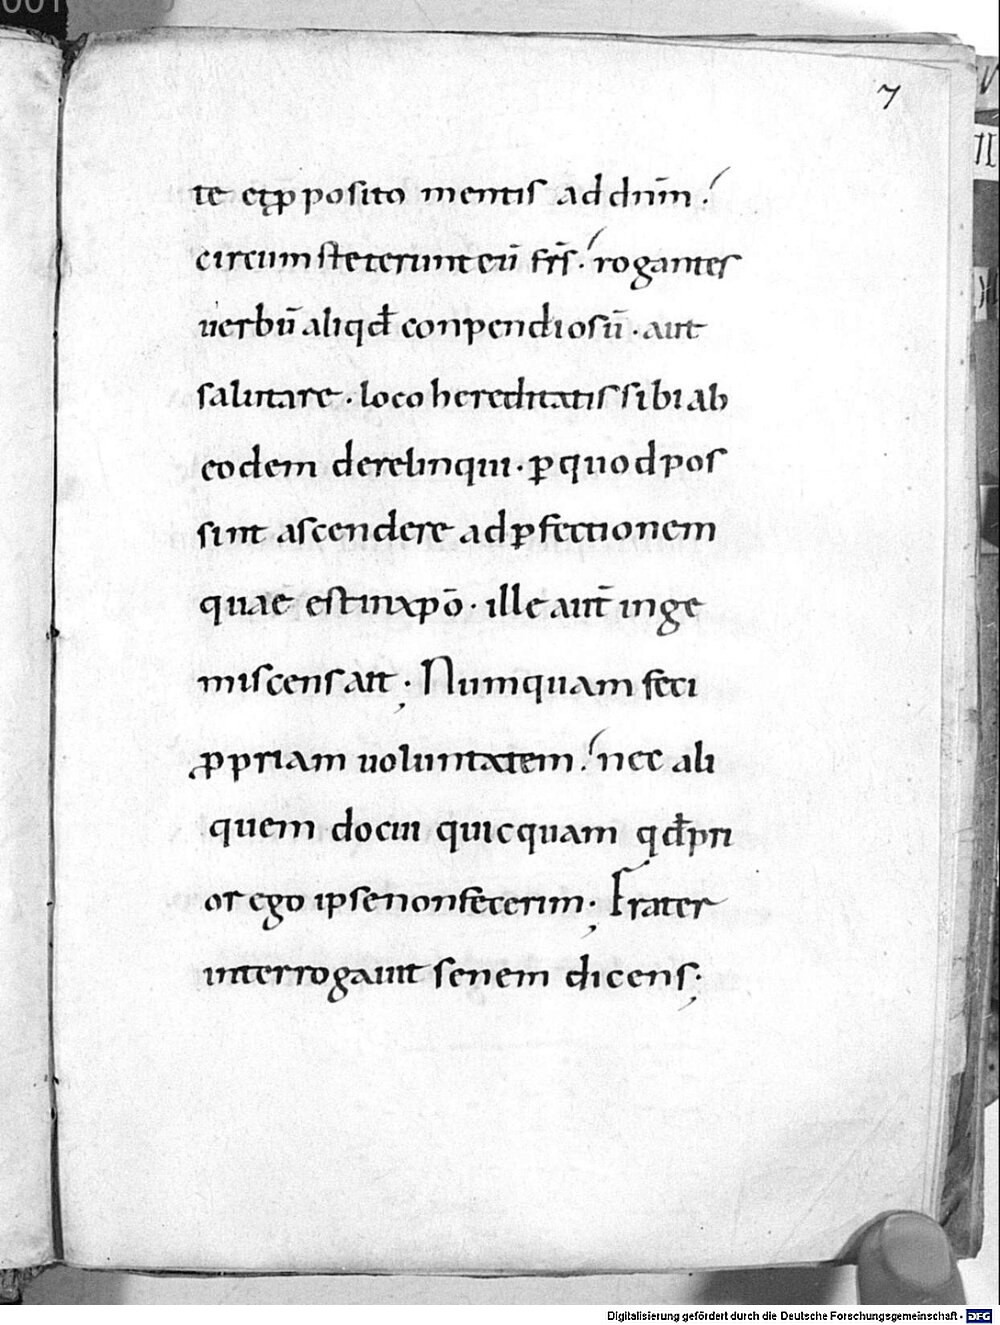 001
7
te et ꝓposito mentis ad dnm̄.
circumsteterunt eū frs̄. rogantes
uerbū aliqđ conpendiosū · aut
salutare · loco hereditatis sibi ab
eodem derelinqui · ꝑ quod pos
sint ascendere ad ꝑfectionem
quae est in xp̄o · ille aut̄ inge
miscens att; Numquam feci
ꝓpriam uoluntatem. nec ali
quem docui quicquam qđ pri
or ego ipse non fecerim; Frater
interrogauit senem dicens;
Digitalisierung gefördert durch die Deutsche Forschungsgemeinschaft - DFG